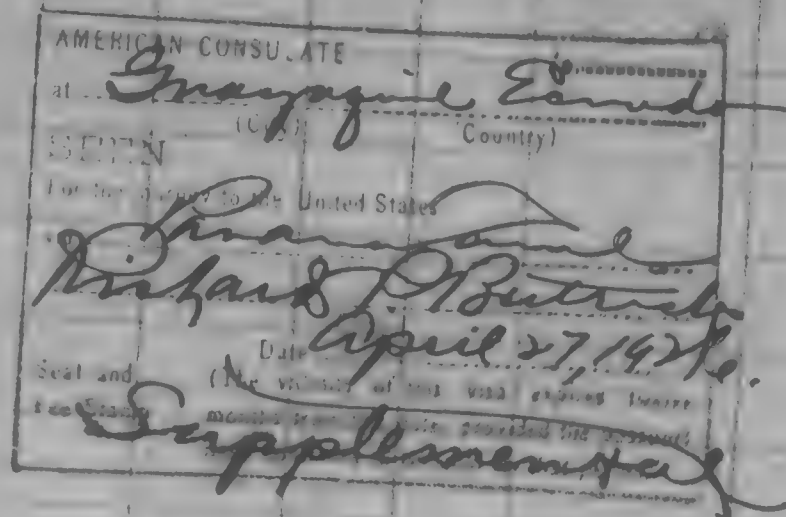 AMERICAN CONSULATE
at Guayaquil Ecuador
(City) (Country)
SEEN
For the journey to the United States
Panama Canal
Richard P. Butrick
Date April 27, 1926.
Seal and (The validity of this visa expires twelve
Fee Stamp months from this date provided the passport
Supplemental